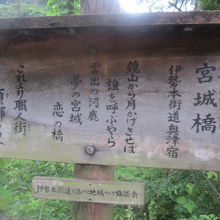 宮城橋
伊勢本街道奥津宿
鏡山から月かげさせば
誰を呼ぶやら
雲出の河鹿
夢の宮城
恋の橋
これより職人街
伊勢本街道を活かした地域づくり協議会